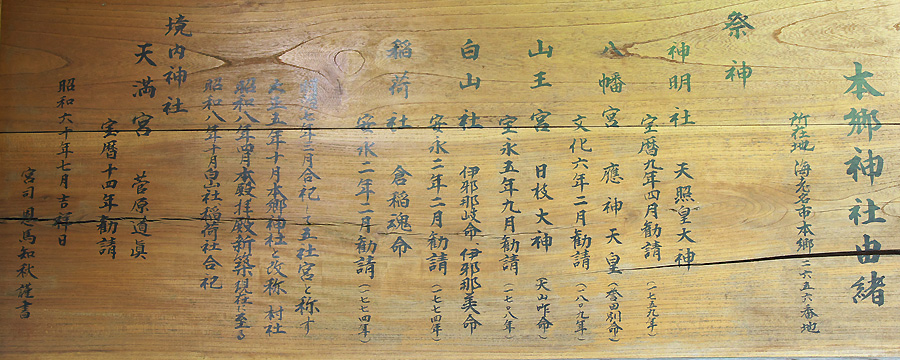 本郷神社由緒
所在地 海老名市本郷二六五六番地
祭神
神明社 天照皇大神
宝暦九年四月勧請(一七五九年)
八幡宮 應神天皇(誉田別命)
文化六年二月勧請(一八〇九年)
山王宮 日枝大神(大山咋命)
安永五年九月勧請
白山社 伊邪那岐命、伊邪那美命
安永二年二月勧請(一七七四年)
稲荷社 倉稲魂命
安永二年二月勧請(一七七四年)
七年二月合祀して五社宮と称す
大正五年十月本郷神社と改称 村社
昭和八年四月本殿拝殿新築現在に至る
昭和八年十月白山社稲荷社合祀
境内神社
天満宮 菅原道眞
宝暦十四年勧請
昭和六十年七月吉祥日
宮司 馬知秋 謹書